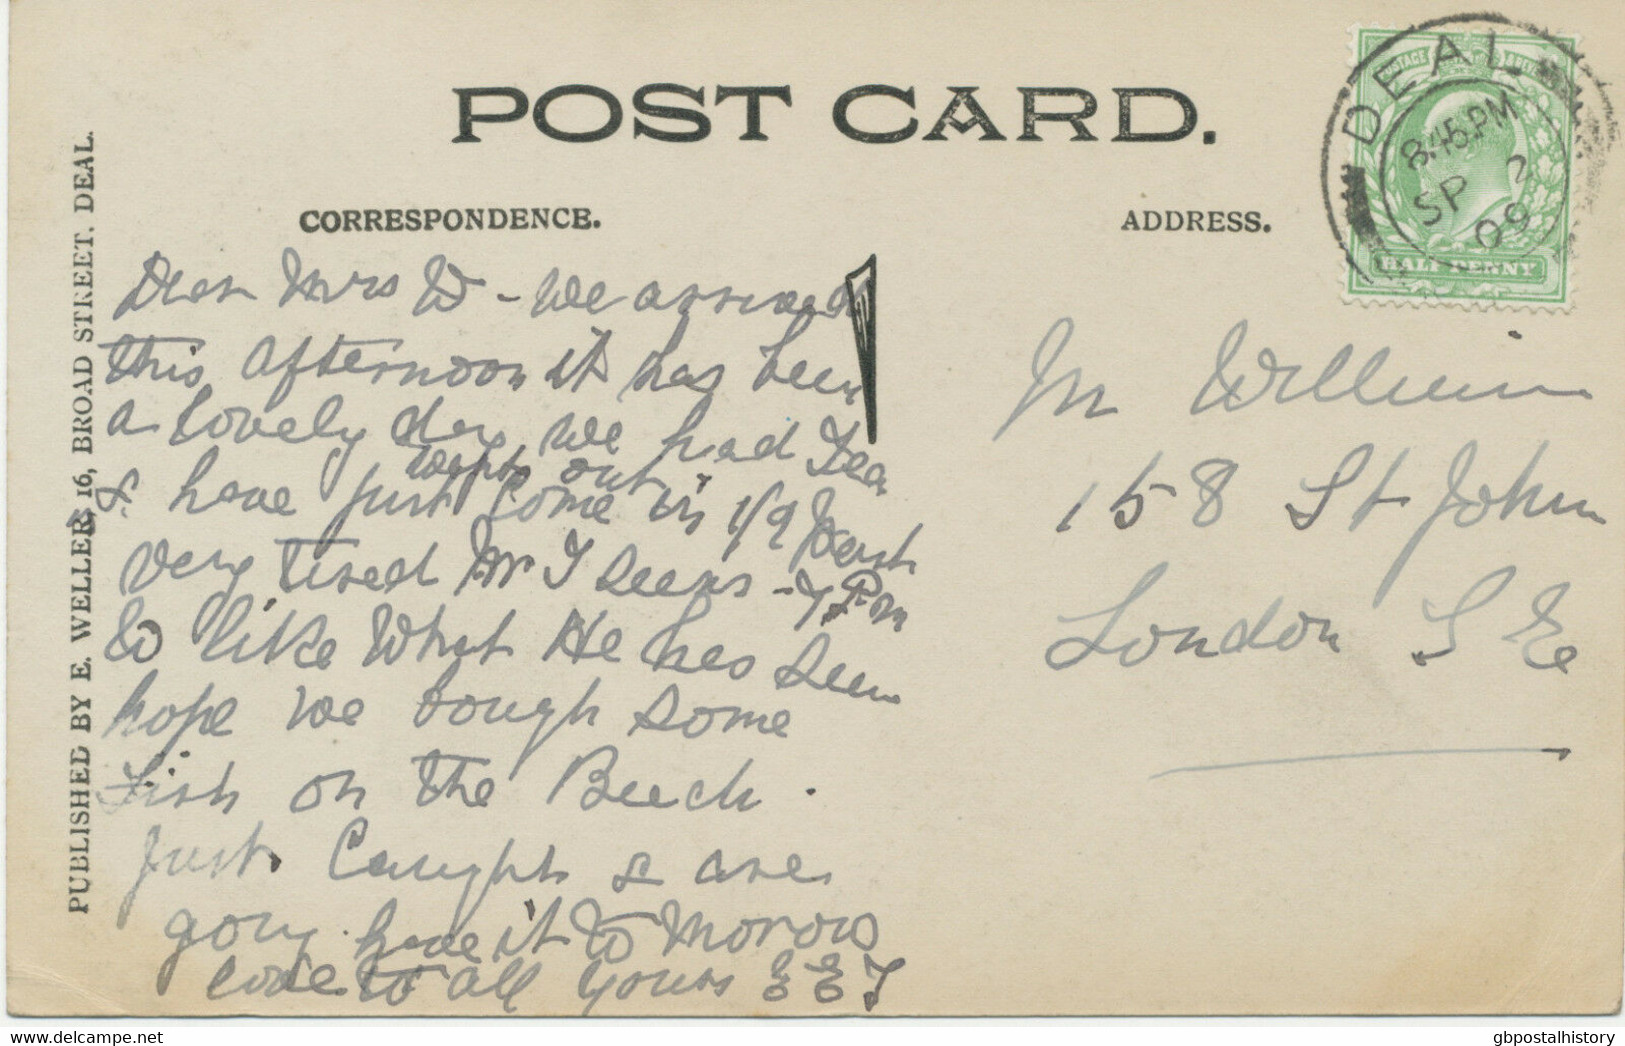 POST CARD.
CORRESPONDENCE.
ADDRESS.
PUBLISHED BY E. WELLER, 16, BROAD STREET. DEAL.
DEAL
8.45.PM
SP 2
09
HALF PENNY
Dear Mrs W - We arrived
this afternoon it has been
a lovely day we had Tea
went out
& have just come in 1/9 past
very tired Mr T seems - 7 P.m
to like What He has seen
hope we bough some
Fish on the Beech.
Just Caught & are
going have it to morow
love to all yours E E T
Mr William
158 St John
London S E
delcampe.net
gbpostalhistory